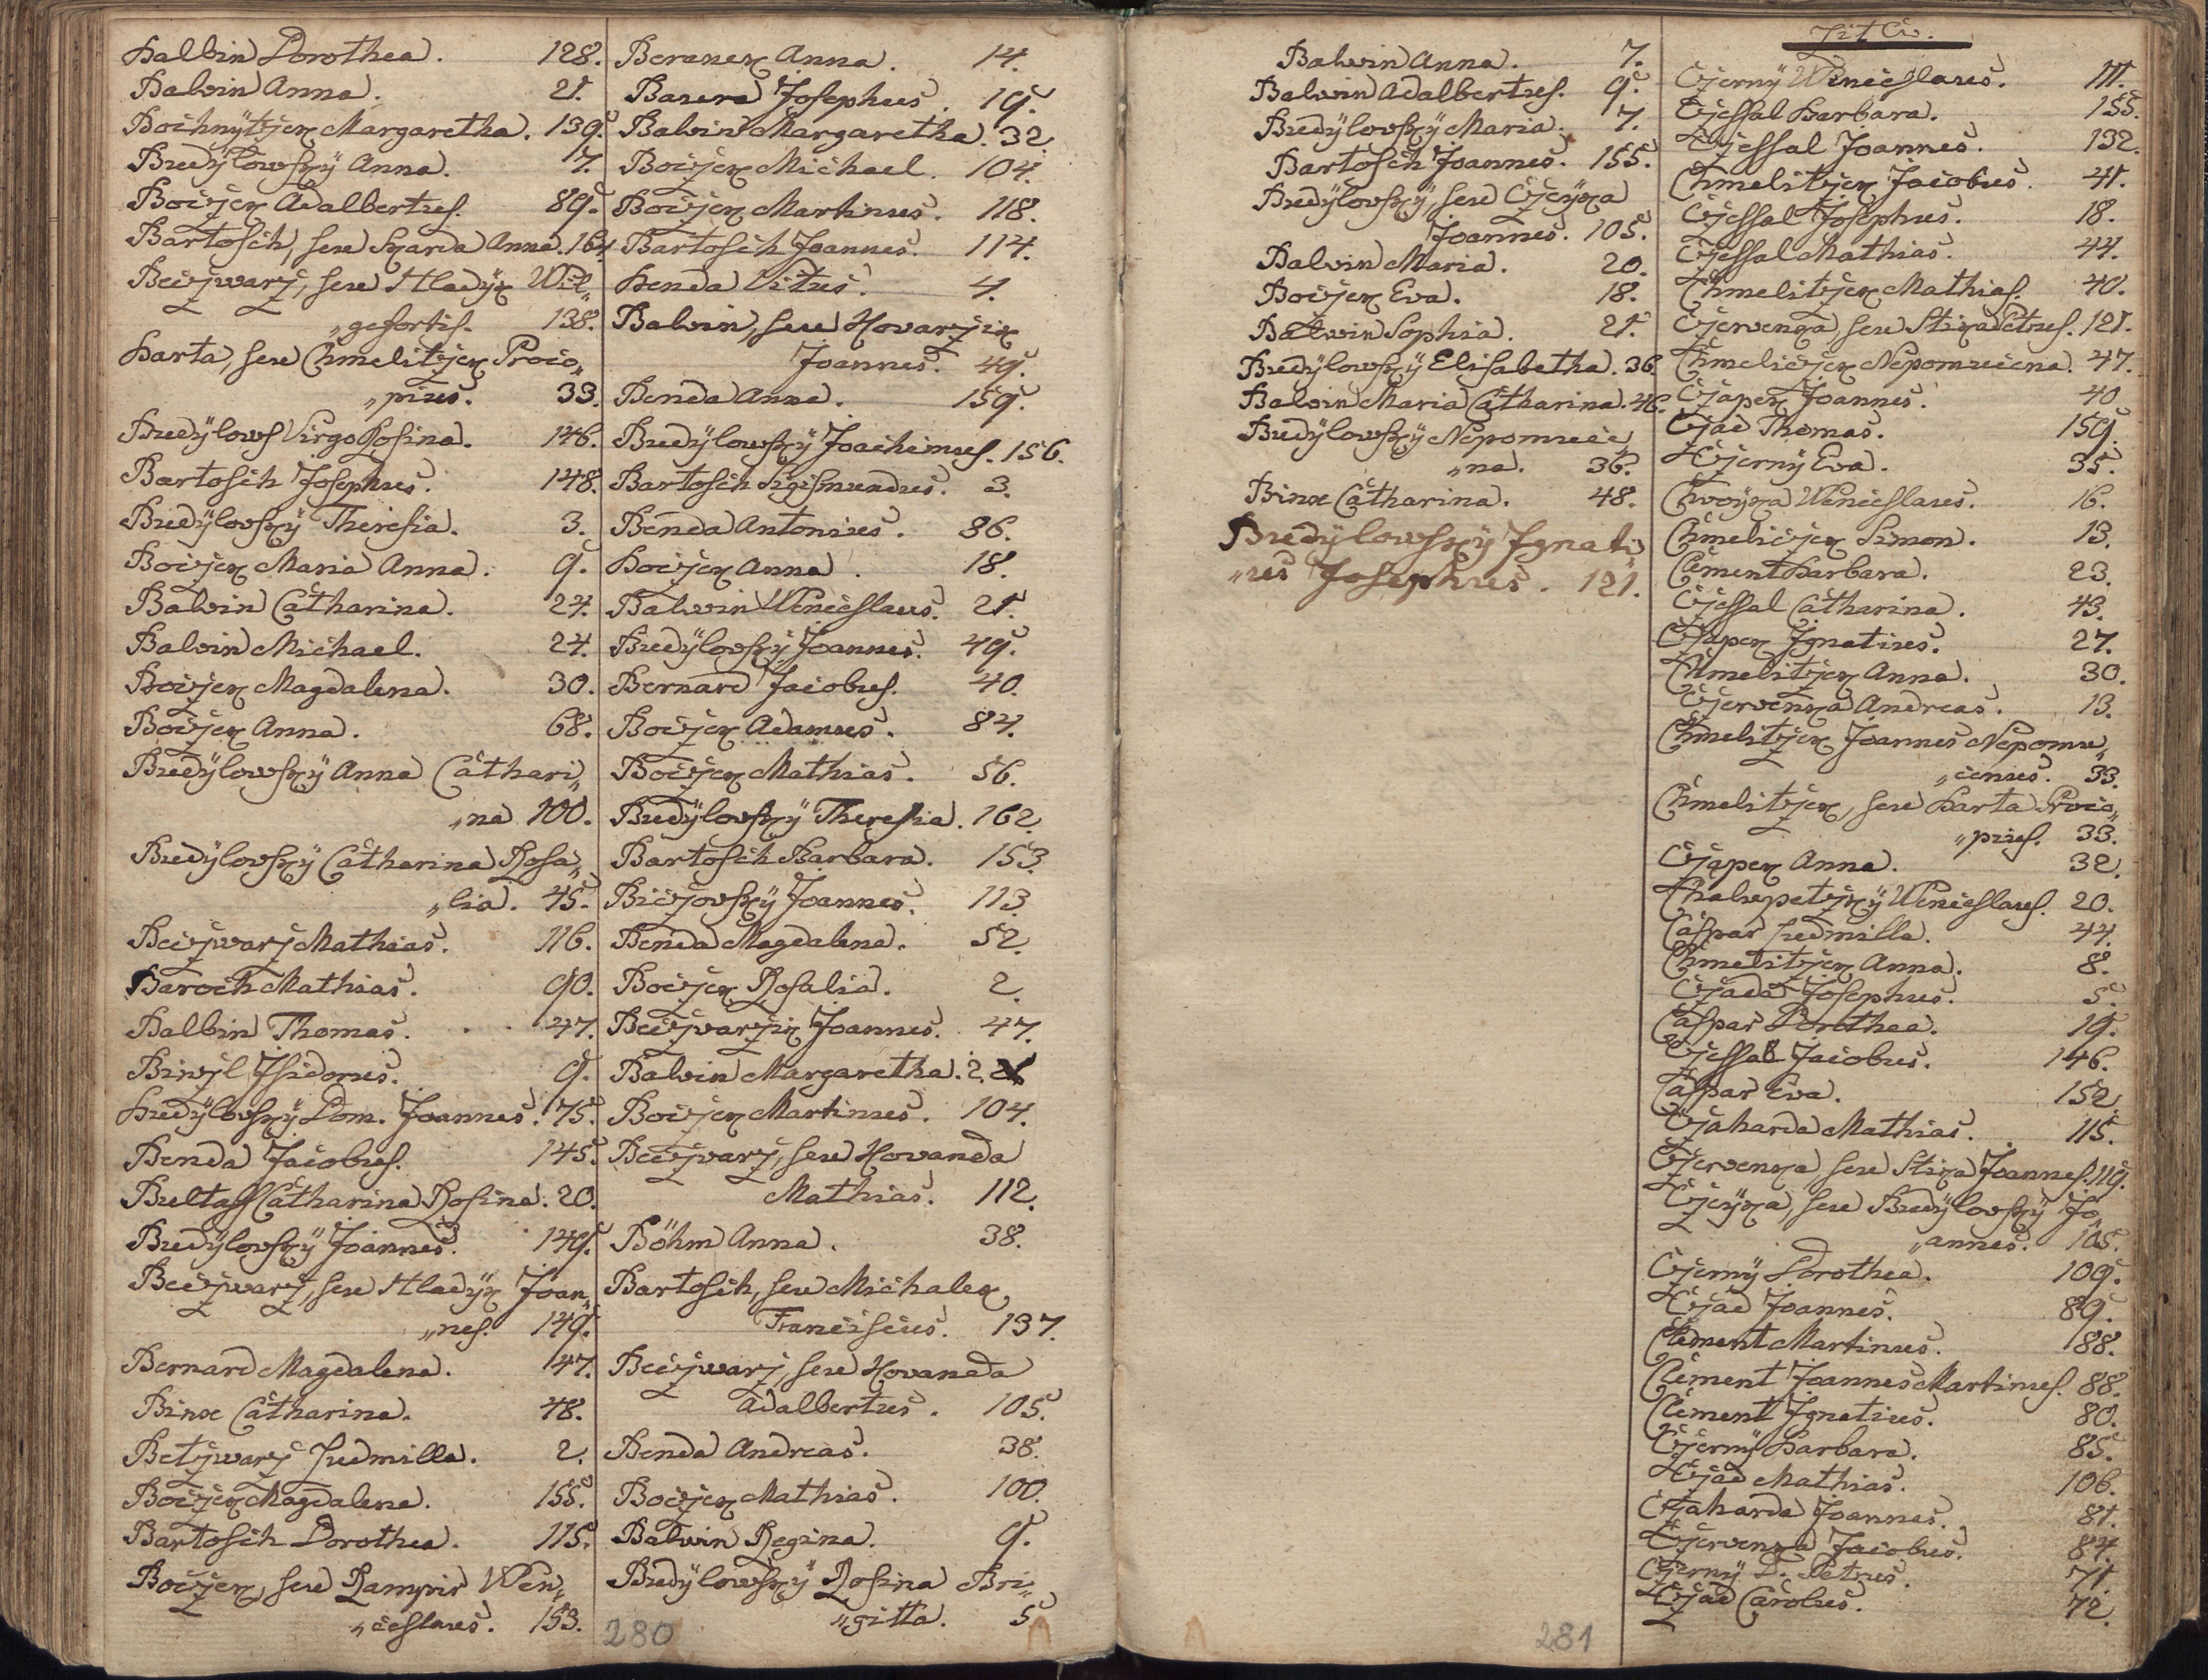 Balbin Dorothea. 128.
Balvin Anna. 21.
Bochnÿtzek Margaretha. 139.
Budÿlowskÿ Anna. 7.
Boczek Adalbertus. 89.
Bartosch, seu Skarda Anna. 164
Beczwarz, seu Hladÿk Wil„
„gefortis. 138.
Barta, seu Chmelitzek Proco„
„pius. 33.
Budÿlows Virgo Rosina. 146.
Bartosch Josephus. 148.
Budÿlovskÿ Theresia. 3.
Boczek Maria Anna. 9.
Balvin Catharina. 24.
Balvin Michael. 24.
Boczek Magdalena. 30.
Boczek Anna. 68.
Budÿlowskÿ Anna Cathari„
„na 100.
Budÿlovskÿ Catharina Rosa„
„lia. 45.
Beczwarz Mathias. 116.
Baroch Mathias. 90.
Balbin Thomas. 47.
Isidorus. 9.
Budÿlovskÿ Dom. Joannes. 75.
Benda Jacobus. 145.
Catharina Rosina. 20.
Budÿlovskÿ Joannes. 149.
Beczwarz, seu Hladÿk Joan„
„nes. 149.
Bernard Magdalena. 47.
Binae Catharina. 48.
Betzwarz Ludmilla. 2.
Boczek Magdalena. 155.
Bartosch Dorothea. 115.
Boczek, seu Wen„
„ceslaus. 153.
Beranek Anna. 14.
Barera Josephus. 19.
Balvin Margaretha. 32.
Boczek Michael. 104.
Boczek Martinus. 118.
Bartosch Joannes. 114.
Benda Vitus. 4.
Balvin, seu Kovarzik
Joannes. 49.
Benda Anna. 159.
Budÿlowskÿ Joachimus. 156.
Bartosch Sigismundus. 3.
Benda Antonius. 86.
Boczek Anna. 18.
Balvin Wenceslaus. 21.
Budÿlovskÿ Joannes. 49.
Bernard Jacobus. 40.
Boczek Adamus. 84.
Boczek Mathias. 56.
Budÿlovskÿ Theresia. 162.
Bartosch Barbara. 153.
Biczovskÿ Joannes. 113.
Benda Magdalena. 52.
Boczek Rosalia. 2.
Beczvarzik Joannes. 47.
Balvin Margaretha. 2.
Boczek Martinus. 104.
Beczvarz, seu Kovanda
Mathias. 112.
Böhm Anna. 38.
Bartosch, seu Michalek
Franciscus. 137.
Beczwarz, seu Kovanda
Adalbertus. 105.
Benda Andreas. 38.
Boczek Mathias. 100.
Balvin Regina. 9.
Budÿlowskÿ Rosina Bri„
„gitta. 5
280
Balvin Anna. 7.
Balvin Adalbertus. 9.
Budÿlovskÿ Maria. 7.
Bartosch Joannes. 155.
Budÿlovskÿ, seu Czeÿka
Joannes. 105.
Balvin Maria. 20.
Boczek Eva. 18.
Balwin Sophia. 21.
Budÿlowskÿ Elisabetha. 36.
Balvin Maria Catharina. 46.
Budÿlowskÿ Nepomuce„
„na. 36.
Binae Catharina. 48.
Budÿlowskÿ Ignati
„us Josephus. 121.
281
Lit C.
Czernÿ Wenceslaus. 111.
Czessal Barbara. 155.
Czessal Joannes. 132.
Chmelitzek Jacobus. 41.
Czessal Josephus. 18.
Czessal Mathias. 44.
Chmelitzek Mathias. 40.
Czervenka, seu Stika Petrus. 121.
Chmeliczek Nepomucena. 47.
Czapek Joannes. 40
Czad Thomas. 159.
Czernÿ Eva. 35.
Chvoÿka Wenceslaus. 16.
Chmeliczek Simon. 13.
Clement Barbara. 23.
Czessal Catharina. 43.
Czapek Ignatius. 27.
Chmelitzek Anna. 30.
Czervenka Andreas. 13.
Chmelitzek Joannes Nepomu„
„cenus. 33
Chmelitzek, seu Barta Proco„
„pius. 33.
Czapek Anna. 32.
Chalupetzkÿ Wenceslaus. 20.
Caspar Ludmilla. 44.
Chmelitzek Anna. 8.
Czada Josephus. 5.
Caspar Dorothea. 19.
Czessal Jacobus. 146.
Caspar Eva. 152.
Czaharda Mathias. 115.
Czervenka, seu Stika Joannes. 119.
Czeÿka, seu Budÿlovskÿ Jo„
„annes. 105.
Czernÿ Dorothea. 109.
Czad Joannes. 89.
Clement Martinus. 88.
Clement Joannes Martinus. 88.
Clement Ignatius. 80.
Czernÿ Barbara. 85.
Czad Mathias. 106.
Czaharda Joannes. 81.
Czervenka Jacobus. 84.
Czernÿ D. Petrus. 71
Czad Carolus. 72.